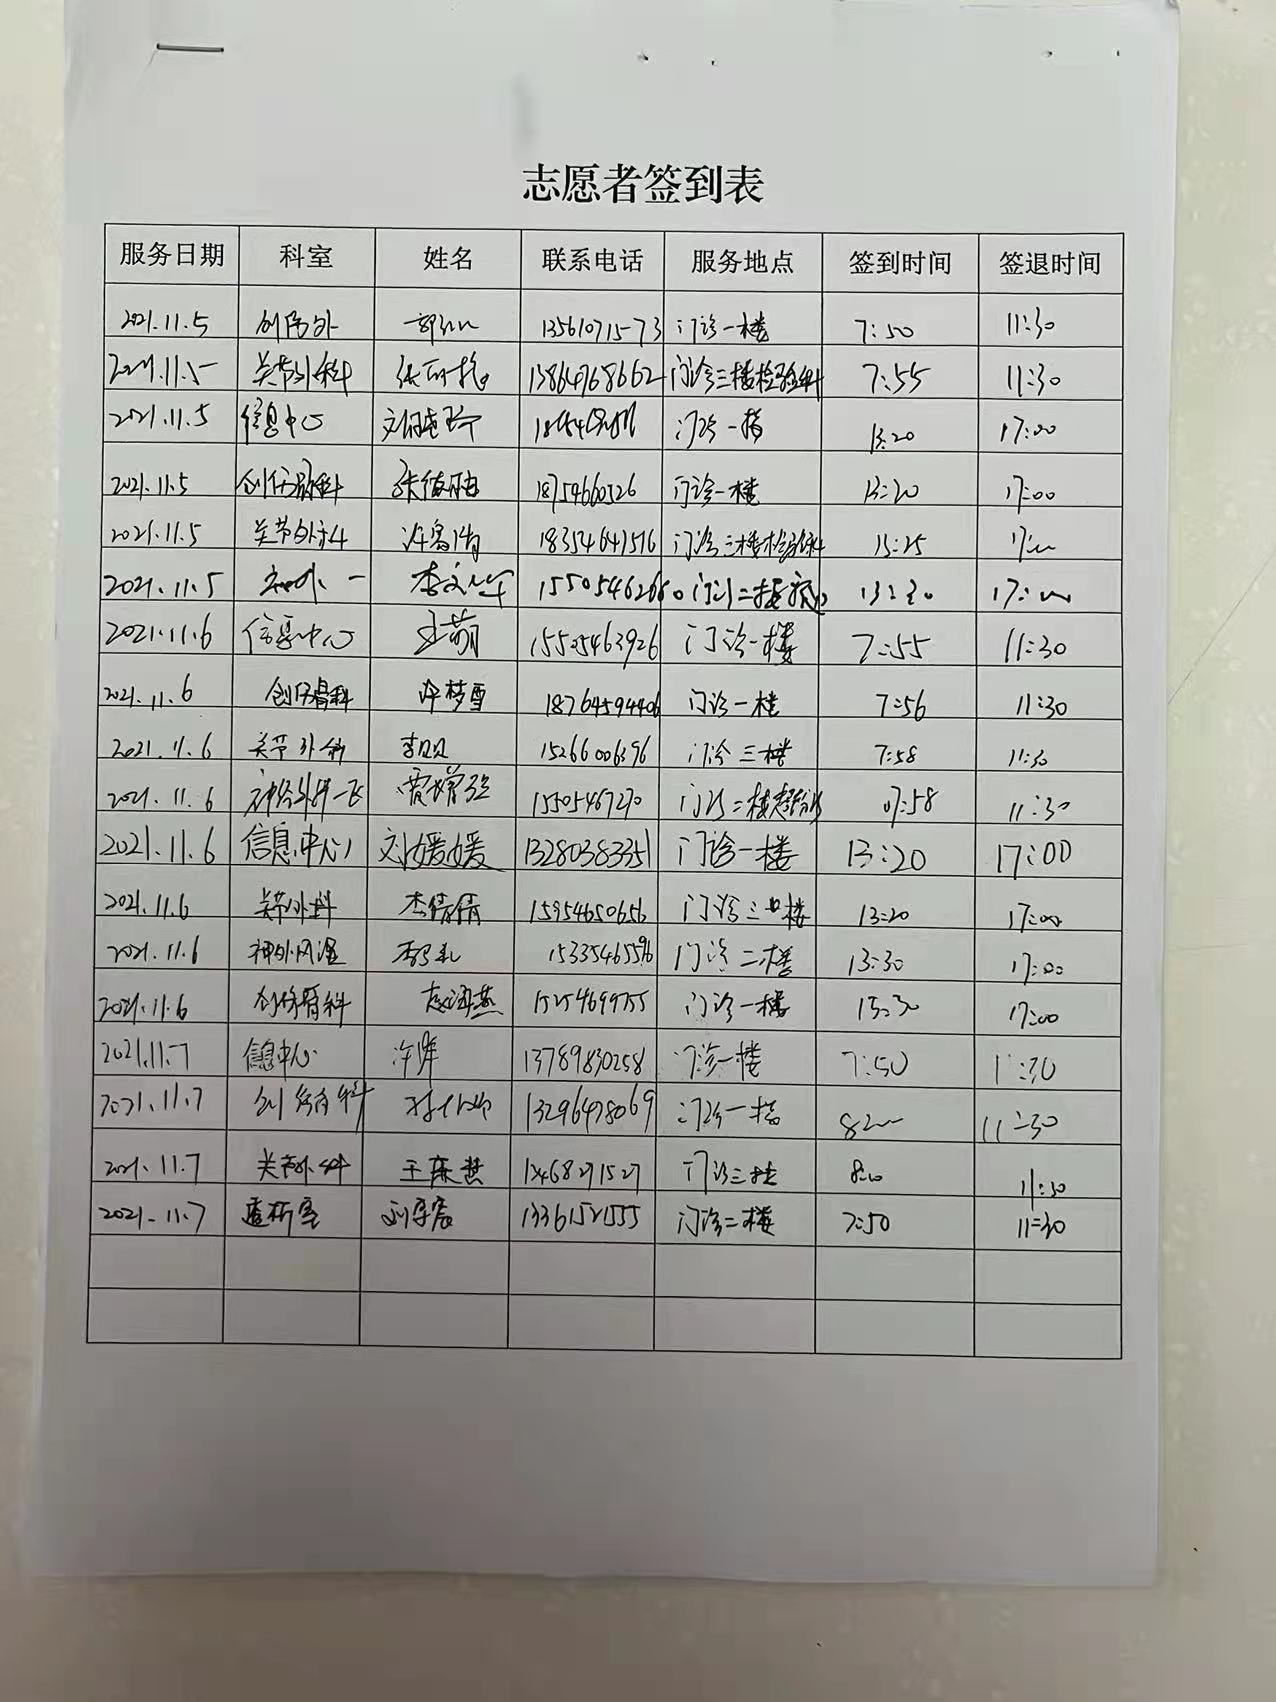 志愿者签到表
服务日期 科室 姓名 联系电话 服务地点 签到时间 签退时间
2021.11.5 门诊一楼 7:50 11:30
2021.11.5 关节外科 13864768662 门诊三楼检验科 7:55 11:30
2021.11.5 信息中心 门诊一楼 13:20 17:00
2021.11.5 创伤骨科 18754660526 门诊一楼 13:20 17:00
2021.11.5 关节外科 18354641516 门诊三楼检验科 13:25
2021.11.5 门诊二楼 13:30
2021.11.6 信息中心 王萌 15505463926 门诊一楼 7:55 11:30
2021.11.6 创伤骨科 许梦雪 18764594406 门诊一楼 7:56 11:30
2021.11.6 关节外科 李贝贝 15266006396 门诊三楼 7:58 11:30
2021.11.6 贾增强 15505467270 门诊二楼 07:58 11:30
2021.11.6 信息中心 刘媛媛 13280383351 门诊一楼 13:20 17:00
2021.11.6 关节外科 李倩倩 15954650656 门诊三楼 13:20 17:00
2021.11.6 15335465596 门诊二楼 13:30 17:00
2021.11.6 创伤骨科 15254699755 门诊一楼 13:30 17:00
2021.11.7 信息中心 13789830258 门诊一楼 7:50 11:30
2021.11.7 创伤骨科 13296478069 门诊一楼 11:30
2021.11.7 关节外科 门诊三楼 8:00 11:30
2021.11.7 透析室 门诊二楼 7:50 11:30